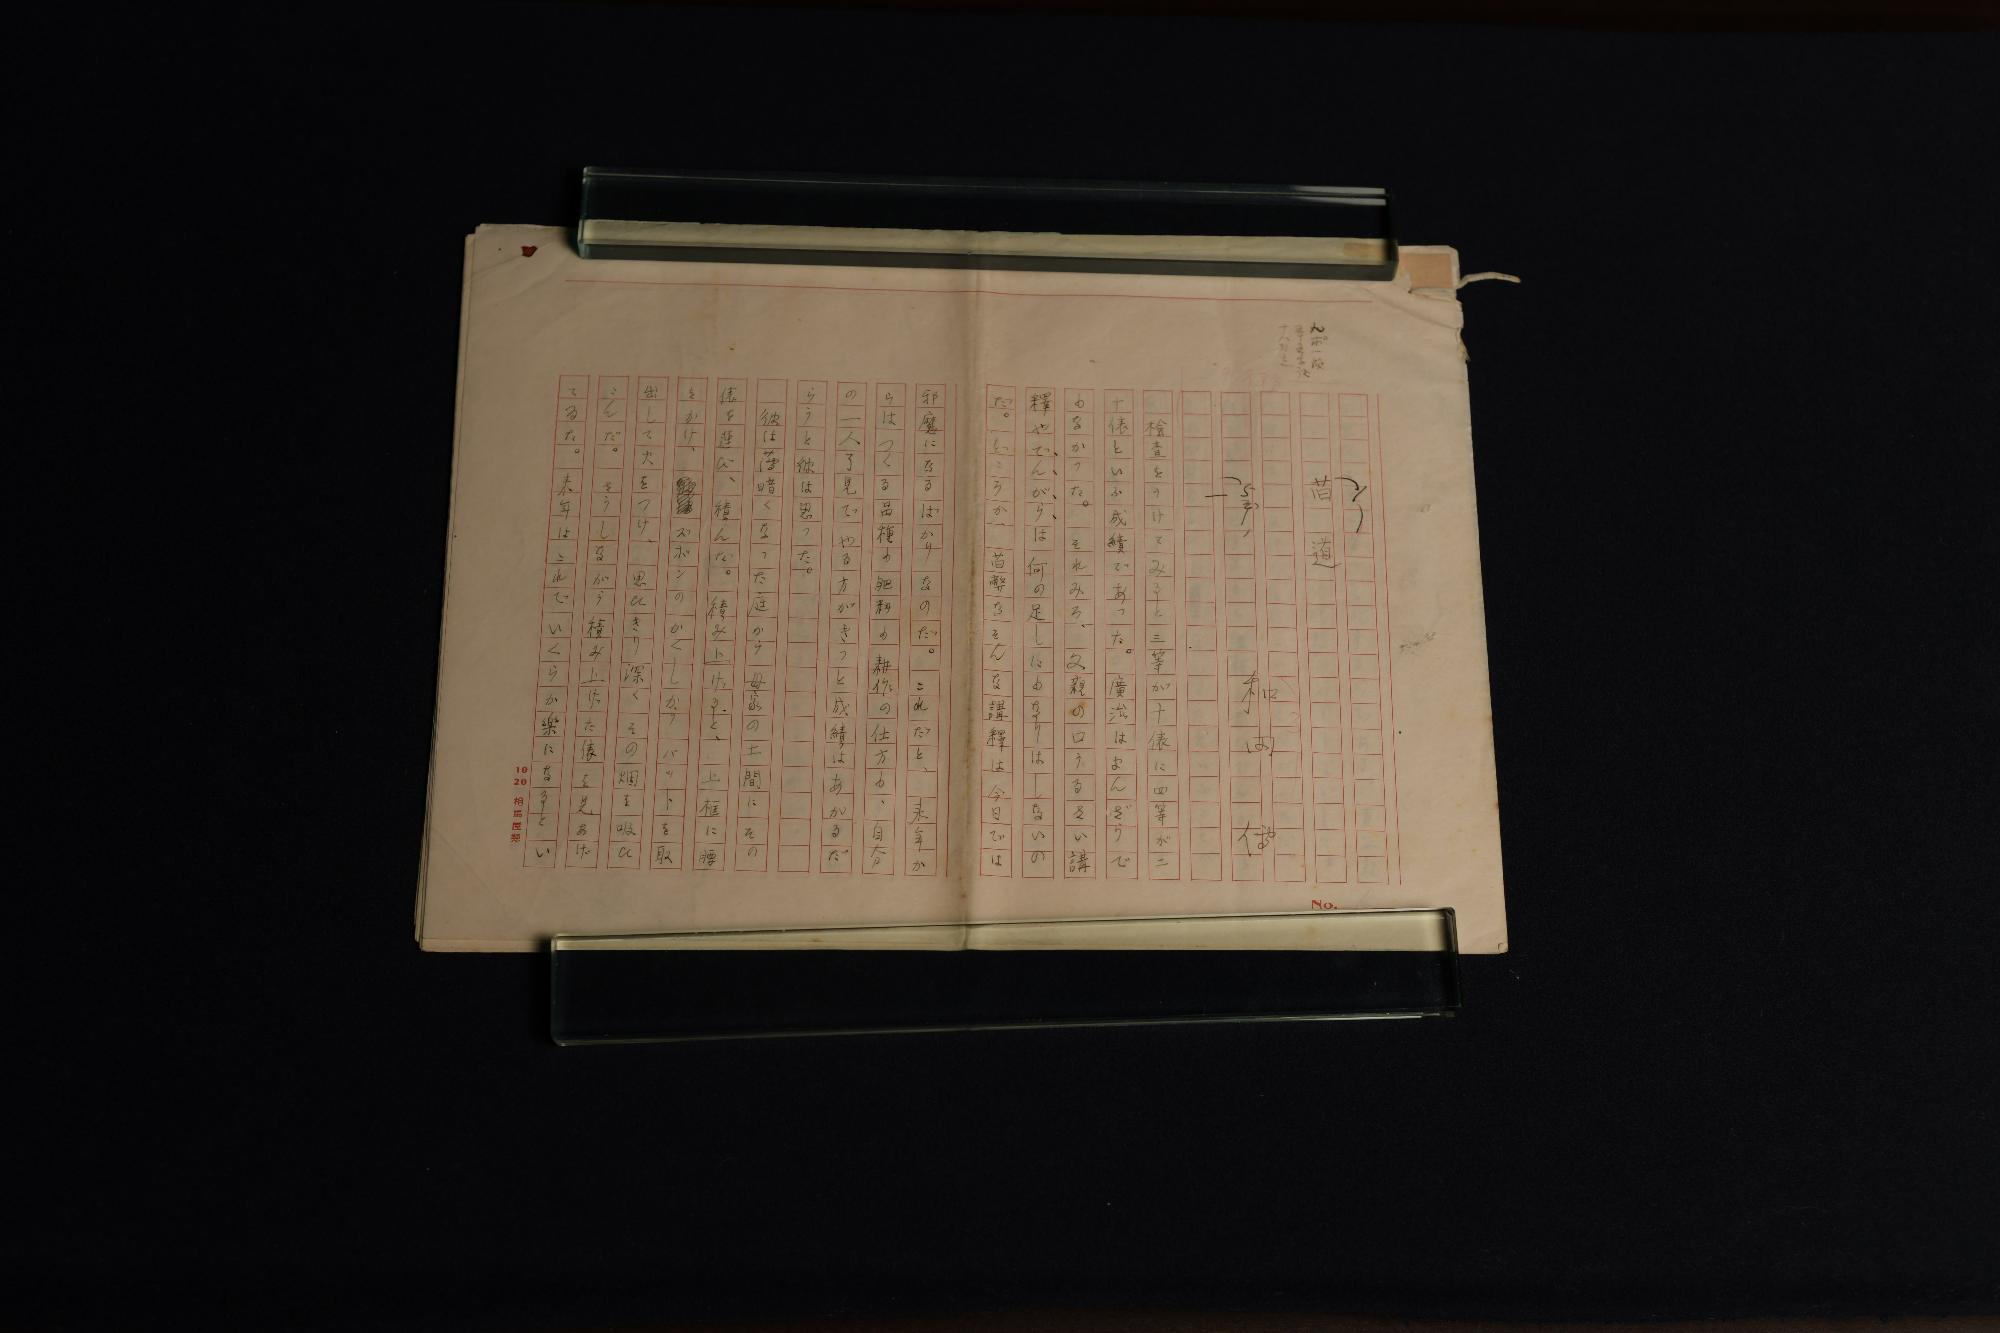 苗道
和田傳
檢査をうけてみると三等が十俵に四等が二
十俵といふ成績であつた。廣治はよんどうで
もなかつた。それみろ、父親の口うるさい講
釋やでんがらは何の足しにもなりはしないの
だ。どころか、苗弊なそんな講釋は今日では
邪魔になるばかりなのだ。これだと、来年か
らはつくる品種も肥料も耕作の仕方も、自分
の一人了見でやる方がきつと成績はあがるだ
らうと彼は思つた。
彼は薄暗くなつた庭から母家の土間にその
俵を運び、積んだ。積み上げると、上框に腰
をかけ、ズボンのかくしからバットを取
出して火をつけ、思ひきり深くその烟を吸ひ
こんだ。さうしながら積み上げた俵を見あげ
てゐた。来年はこれでいくらか楽になるとい
No.
10 20 相馬屋製